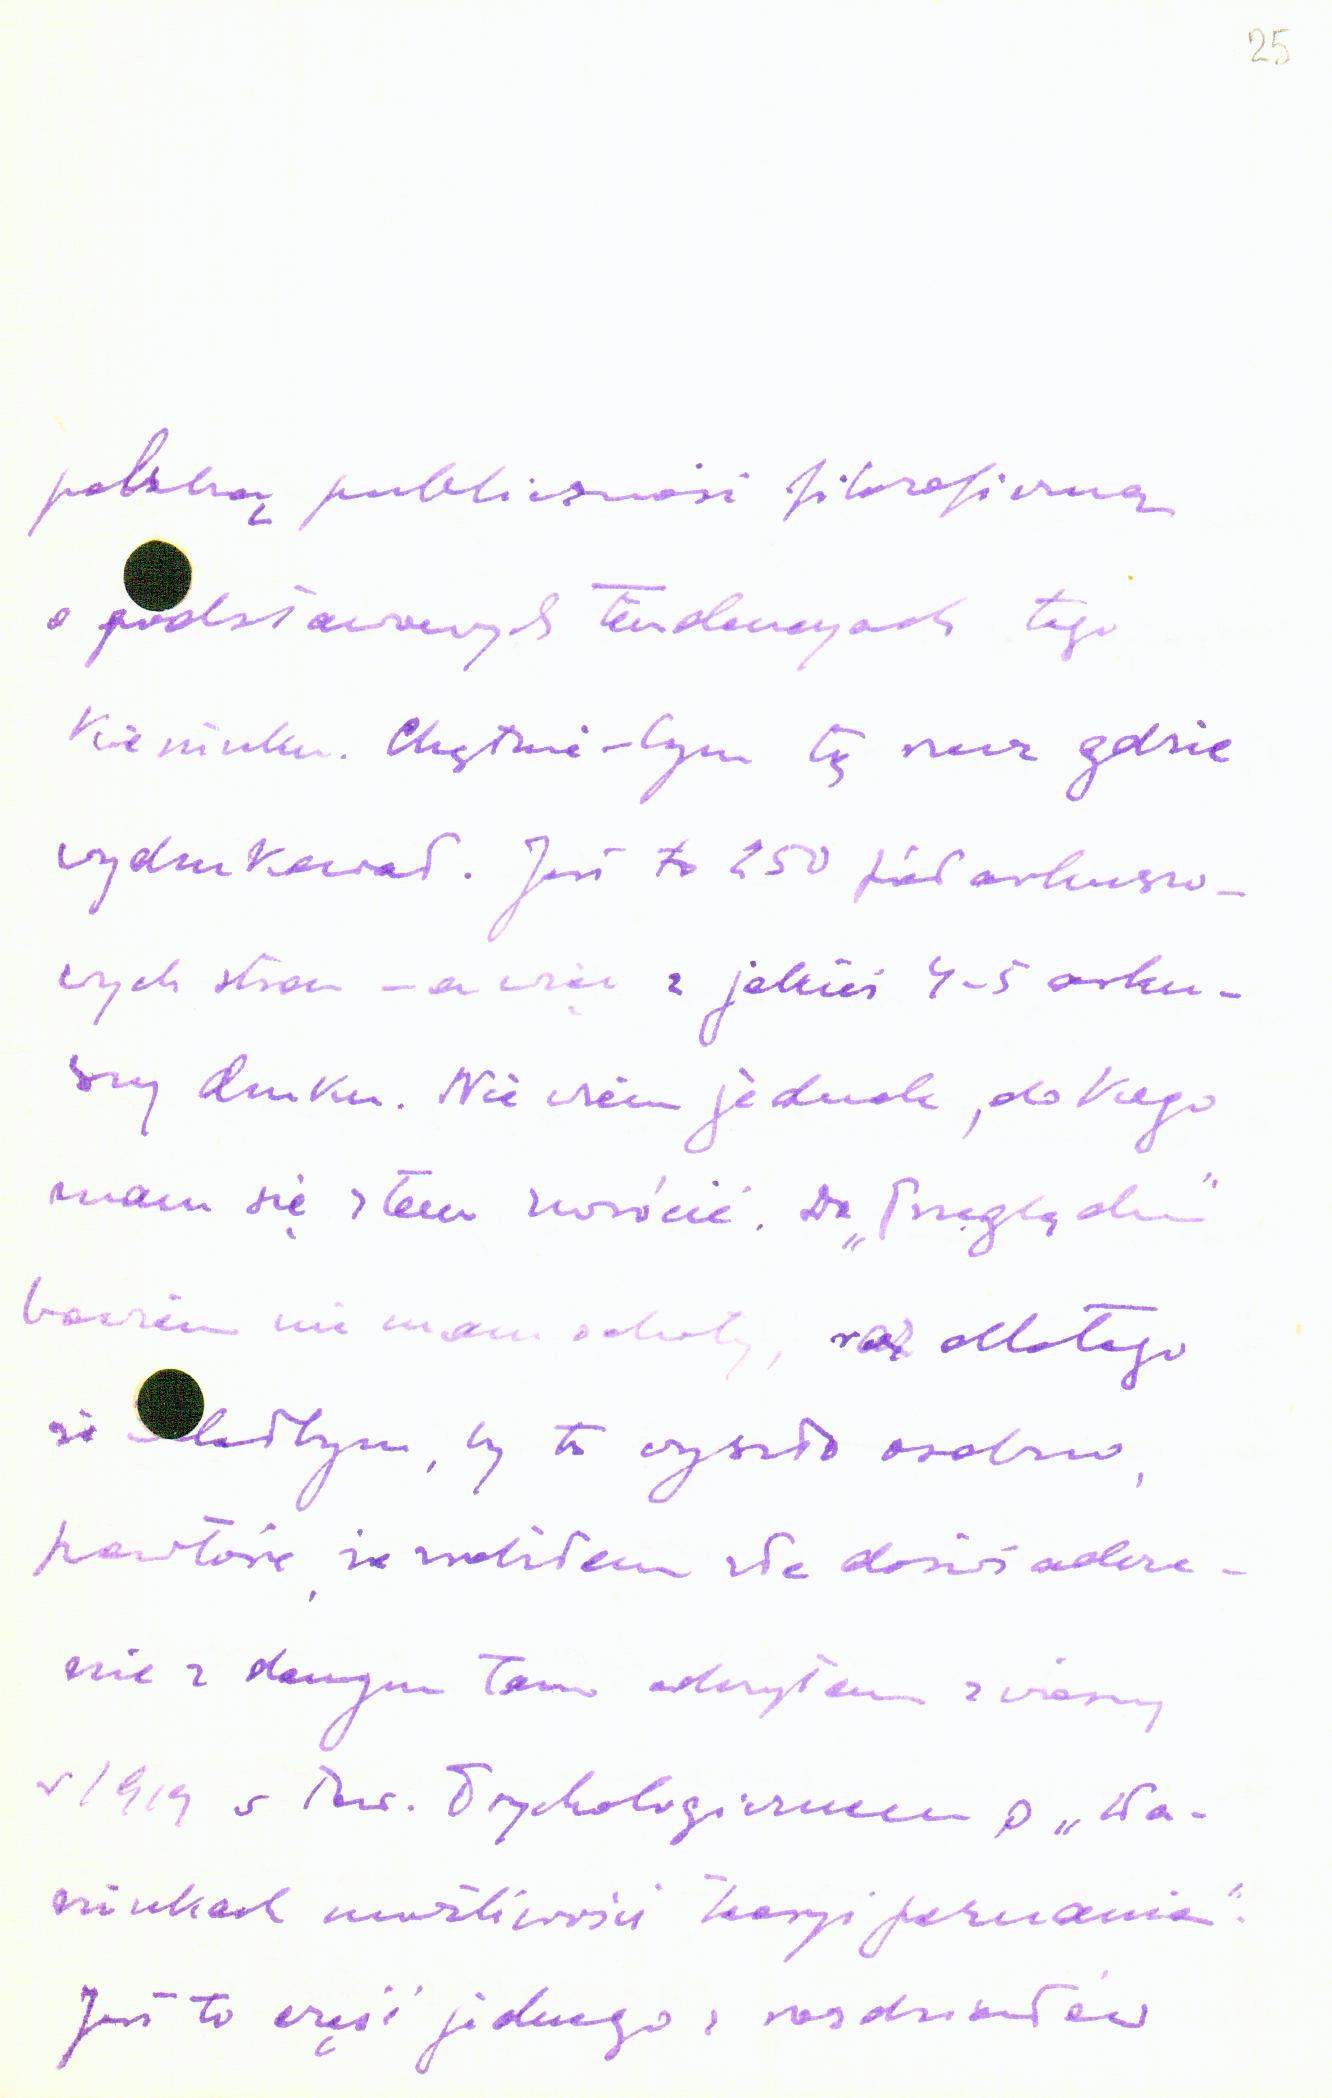 25
polską publiczność filozoficzną
o podstawowych tendencyach tego
kierunku. Chętnie-bym tę rzecz gdzie
wydrukował. Jest to 250 półarkuszo-
wych stron - a więc z jakieś 4-5 arku-
szy druku. Nie wiem jednak, do kogo
mam się z tem zwrócić. Do „Przeglądu"
bowiem nie mam ochoty, raz dlatego
że chciałbym, by to wyszło osobno,
powtóre, że zrobiłem złe doświadcze-
nie z danym tam odczytem z wiosny
r 1919 w Tow. Psychologicznem o „Wa-
runkach możliwości teoryi poznania".
Jest to część jednego z rozdziałów